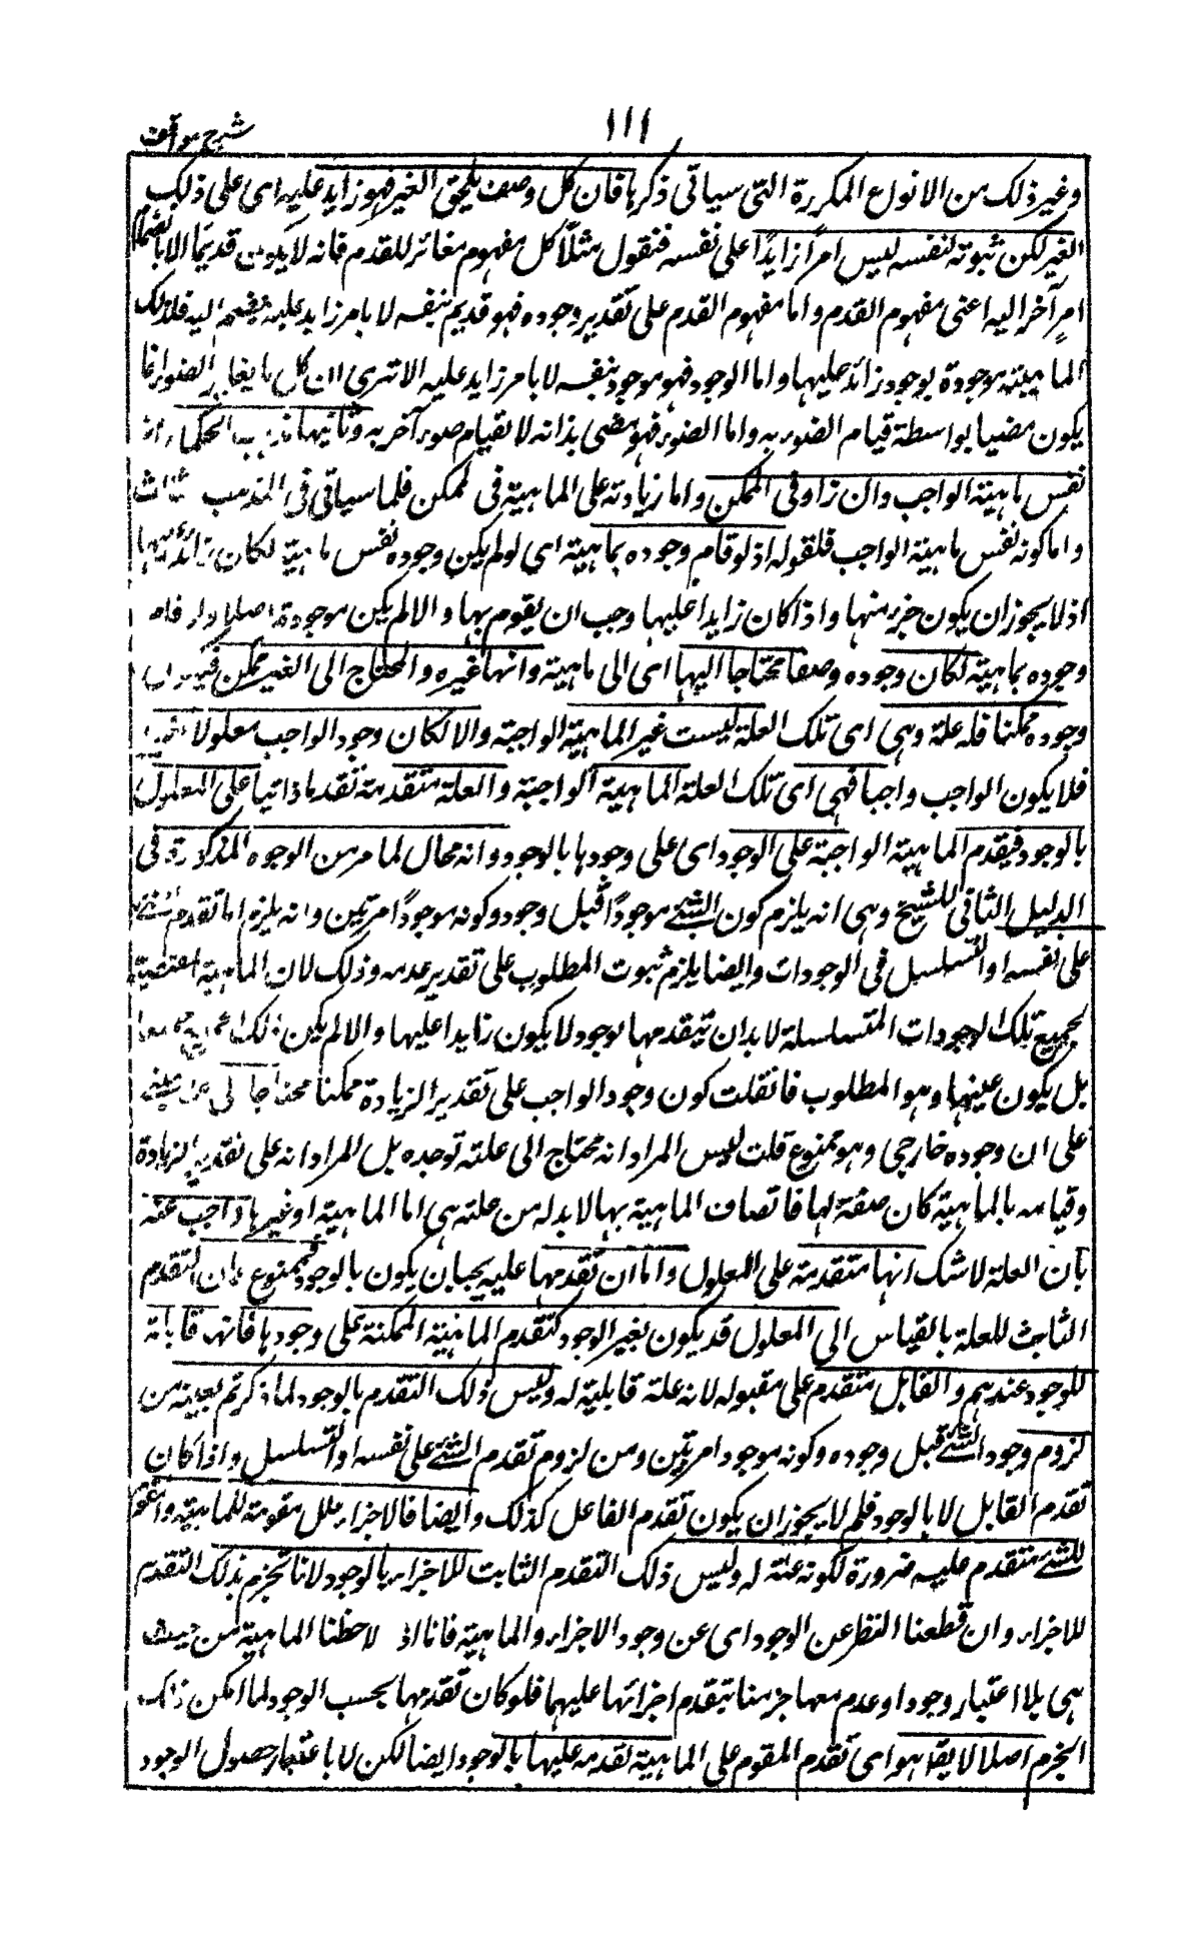 شرح مواقف
١١١
وغير ذلك من الانواع المكررة التى سياتى ذكرها فان كل وصف يلحق الغير فهو زايد عليه اى على ذلك
الغير لكن ثبوته لنفسه ليس امرًا زايدًا على نفسه فنقول مثلًا كل مفهوم مغائر للقدم فانه لا يكون قديمًا الا بانضمام
امرٍ آخر اليه اعنى مفهوم القدم واما مفهوم القدم على تقدير وجوده فهو قديم بنفسه لا بامر زايد عليه ينضم اليه فلذلك
الماهيته موجودة بوجود زائد عليها واما الوجود فهو موجود بنفسه لا بامر زايد عليه الا ترى ان كل ما يغاير الضوء انما
يكون مضيا بواسطة قيام الضوء به واما الضوء فهو مضى بذاته لا بقيام ضوء آخر به وثانيها مذهب الحكماء انه
نفس ماهيته الواجب وان زاد فى الممكن واما زيادته على الماهية فى الممكن فلما سياتى فى المذهب الثالث
واما كونه نفس ماهية الواجب فلقوله اذ لو قام وجوده بماهيته اى لو لم يكن وجوده نفس ماهيته لكان زائدًا عليها
اذ لا يجوز ان يكون جزء منها واذا كان زايدا عليها وجب ان يقوم بها والا لم يكن موجودة اصلا ولو قام
وجوده بماهيته لكان وجوده وصفا محتاجا اليها اى الى ماهيته وانها غيره والمحتاج الى الغير ممكن فيكون
وجوده ممكنا فله علة وهى اى تلك العلة ليست غير الماهية الواجبة والا لكان وجود الواجب معلولا لغيره
فلا يكون الواجب واجبا فهى اى تلك العلة الماهية الواجبة والعلة متقدمة تقدما ذاتيا على المعلول
بالوجود فيتقدم الماهية الواجبة على الوجود اى على وجودها بالوجود وانه محال لما مر من الوجوه المذكورة فى
الدليل الثانى للشيخ وهى انه يلزم كون الشئ موجودًا قبل وجوده وكونه موجودًا مرتين وانه يلزم اما تقدم الشئ
على نفسه او التسلسل فى الوجودات وايضا يلزم ثبوت المطلوب على تقدير عدمه وذلك لان الماهية المقتضية
لجميع تلك الوجودات المتسلسلة لا بد ان تتقدمها بوجود لا يكون زايدا عليها والا لم يكن ذلك الجميع جميعا
بل يكون عينها وهو المطلوب فان قلت كون وجود الواجب على تقدير الزيادة ممكنا محتاجا الى علة مبنى
على ان وجوده خارجى وهو ممنوع قلت ليس المراد انه محتاج الى علته توجده بل المراد انه على تقدير الزيادة
وقيامه بالماهية كان صفة لها فاتصاف الماهية بها لا بد له من علته هى اما الماهية او غيرها واجيب عنه
بان العلة لا شك انها متقدمة على المعلول واما ان تقدمها عليه يجب ان يكون بالوجود فممنوع فان التقدم
الثابت للعلة بالقياس الى المعلول قد يكون بغير الوجود كتقدم الماهية الممكنة على وجودها فانها قابلة
للوجود عندهم والقابل متقدم على مقبوله لانه علة قابلية له وليس ذلك التقدم بالوجود لما ذكرتم بعينه من
لزوم وجود الشئ قبل وجوده وكونه موجود امرتين ومن لزوم تقدم الشئ على نفسه او التسلسل واذا كان
تقدم القابل لا بالوجود فلم لا يجوز ان يكون تقدم الفاعل كذلك وايضا فالاجزاء علل مقومة للماهية والمقوم
للشئ متقدم عليه ضرورة لكونه علته له وليس ذلك التقدم الثابت للاجزاء بالوجود لانا نجزم بذلك التقدم
للاجزاء وان قطعنا النظر عن الوجود اى عن وجود الاجزاء والماهية فانا اذ لاحظنا الماهية من حيث
هى بلا اعتبار وجود او عدم معها جزمنا بتقدم اجزائها عليها فلو كان تقدمها بحسب الوجود لما امكن ذلك
الجزم اصلا لا يقا هو اى تقدم المقوم على الماهية تقدمه عليها بالوجود ايضا لكن لا باعتبار حصول الوجود